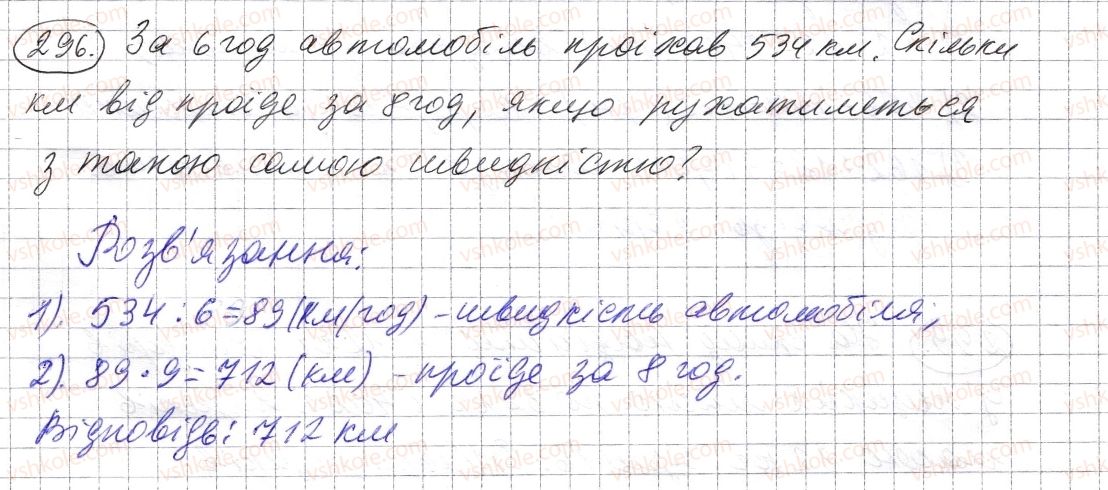 296. За 6 год автомобіль проїхав 534 км. Скільки
км від проїде за 8 год, якщо рухатиметься
з такою самою швидкістю?
Розв'язання:
1). 534 : 6 = 89 (км/год) - швидкість автомобіля;
2). 89 · 9 = 712 (км) - проїде за 8 год.
Відповідь: 712 км